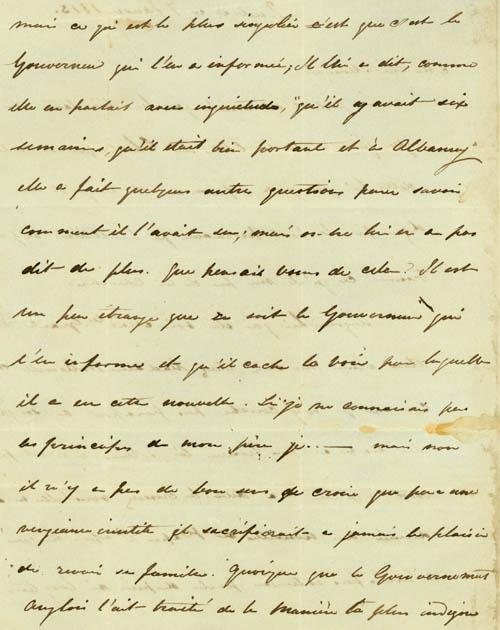 mais ce qui est le plus singulier c'est que c'est le
Gouverneur qui l'en a informée; Il lui a dit, comme
elle en parlait avec inquietude, "qu'il y avait six
semaines, qu'il etait bien portant et à Albany"
elle a fait quelques autre questions pour savoir
comment il l'avait su; mais on ne lui en a pas
dit de plus. Que pensais vous de cela? Il est
un peu étrange que ce soit le Gouverneur qui
l'en informe et qu'il cache la voie par laquelle
il a eu cette nouvelle. Si je ne connaisais pas
les principes de mon père je — mais non
il n'y a pas de bon sens de croire que pour une
vengeance inutile il sacrifierait a jamais le plaisir
de revoir sa famille. Quoique que le Gouvernement
Anglois l'ait traité de la manière la plus indigne